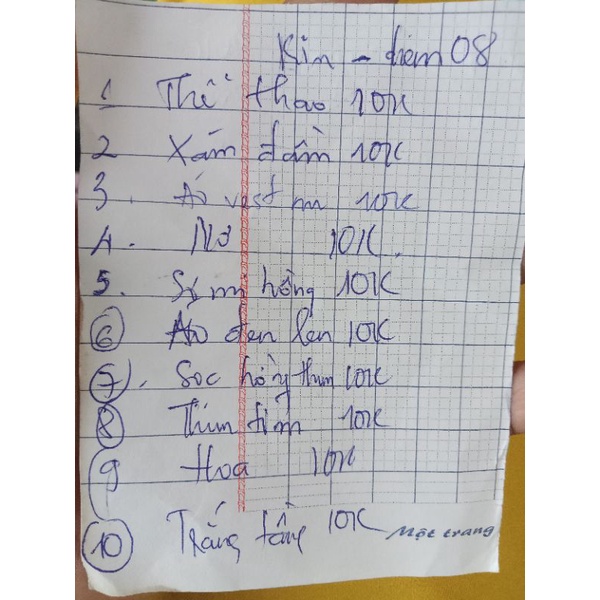 Kin - điểm 08
1 Thể thao 10K
2 Xám đầm 10K
3. Áo vest nu 10K
4. Nơ 10K.
5. Sơ mi hồng 10K
6 Áo đen len 10K
7. Sọc hồng thun 10K
8 Thun tím 10K
9 Hoa 10K
10 Trắng tầng 10K
Một trang